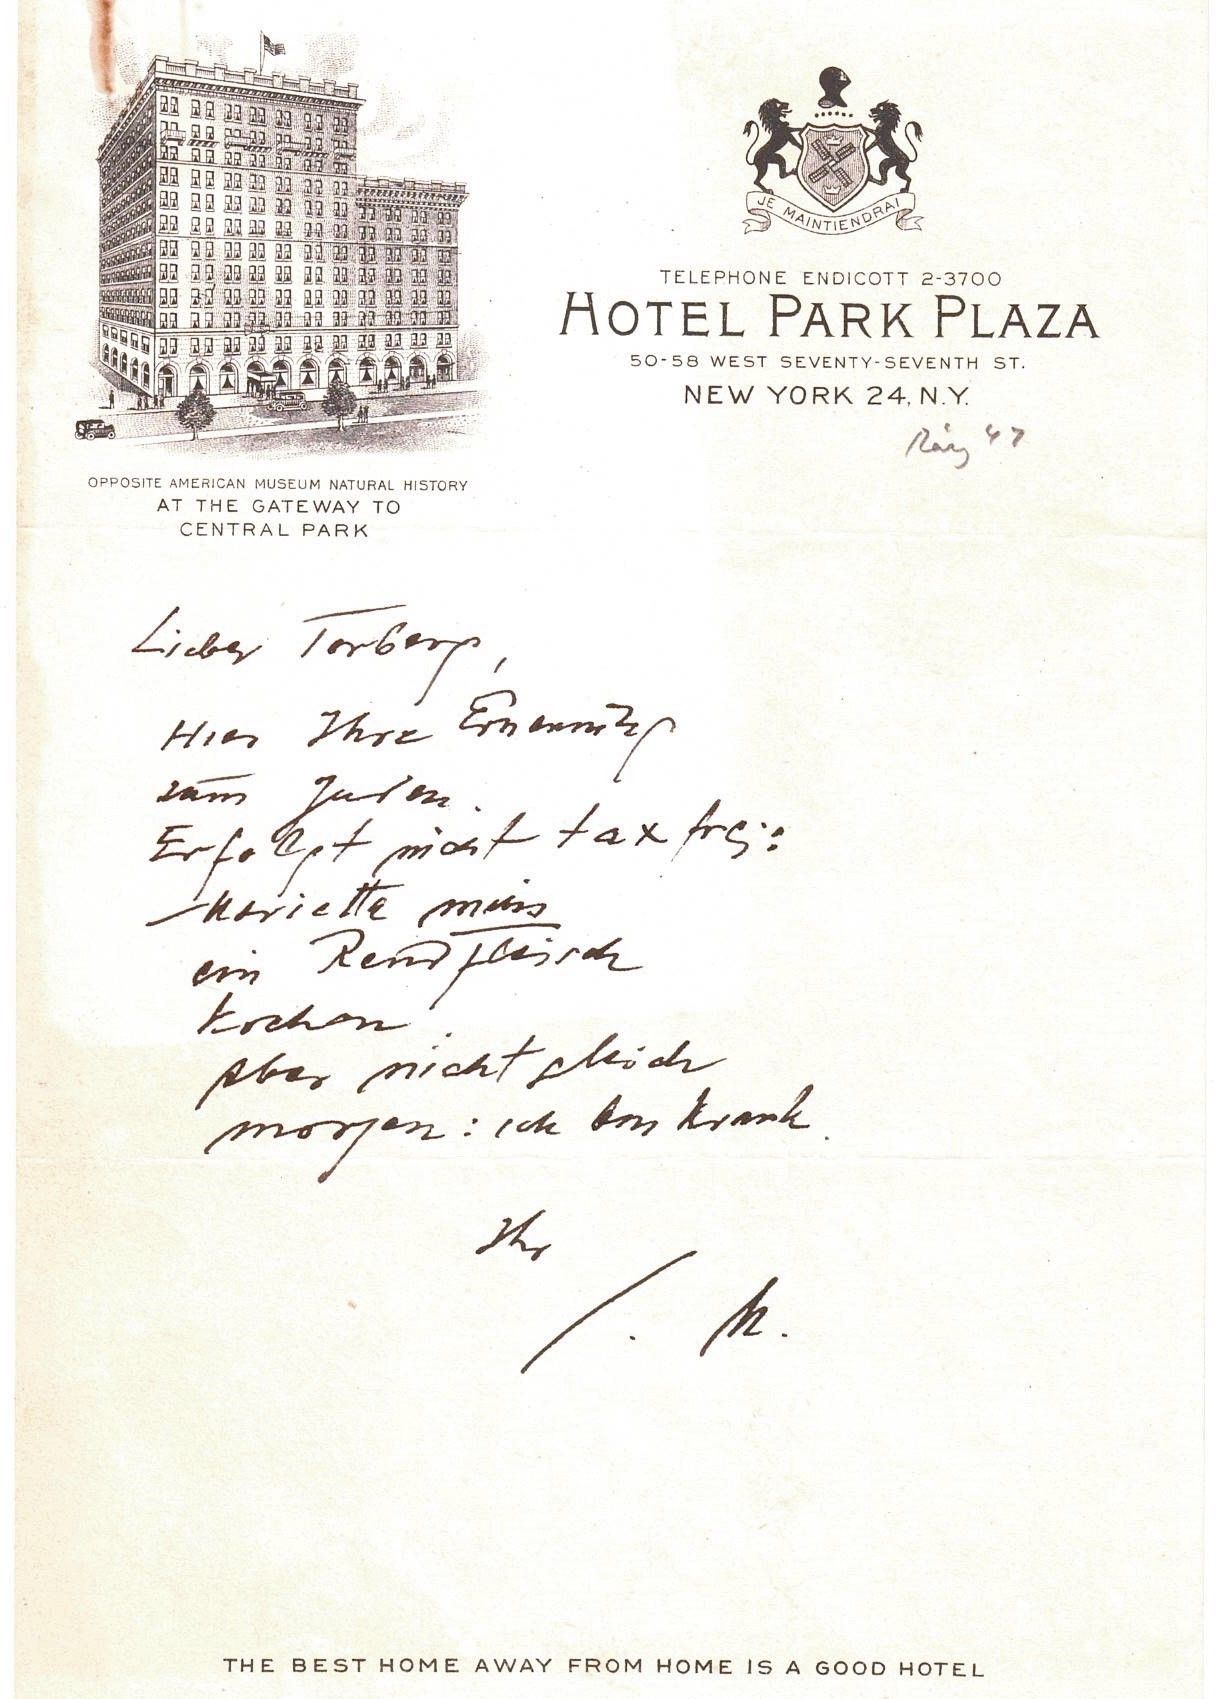 JE MAINTIENDRAI
TELEPHONE ENDICOTT 2-3700
HOTEL PARK PLAZA
50-58 WEST SEVENTY-SEVENTH ST.
NEW YORK 24, N.Y.
März 47
OPPOSITE AMERICAN MUSEUM NATURAL HISTORY
AT THE GATEWAY TO
CENTRAL PARK
Lieber Torberg,
Hier Ihre Ernennung
zum Juden.
Erfolgt nicht taxfrei:
Marietta muss
ein Rindfleisch
kochen.
Aber nicht gleich
morgen: ich bin krank.
Ihr
THE BEST HOME AWAY FROM HOME IS A GOOD HOTEL